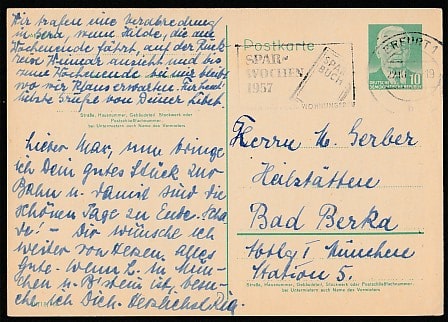 Wir trafen uns Verabredung
in Gera, wenn Hilde, die am
Wochenende fährt, auf der Rück-
reise Weimar ansieht und bis
zum Wochenende bei mir bleibt
wo wir Klaus erwarten. Für heut
Grüße von Deiner Liebst.
Straße, Hausnummer, Gebäudeteil, Stockwerk oder
Postschließfachnummer,
bei Untermietern auch Name des Vermieters
Lieber Max, nun bringe
ich Dein gutes Stück zur
Bahn u. damit sind die
schönen Tage zu Ende. Scha-
de! – Dir wünsche ich
weiter von Herzen alles
Gute. Wenn L. in Mün-
chen u. B. stein ist, besu-
che ich Dich. Herzlichst
Postkarte
SPAR-
WOCHEN
1957
SPAR
BUCH
ERFURT 1
DEUTSCHE
DEMOKRATISCHE REPUBLIK
10
Herrn M. Gerber
Heilstätten
Bad Berka
München
Station 5.
Straße, Hausnummer, Gebäudeteil, Stockwerk oder Postschließfachnummer,
bei Untermietern auch Name des Vermieters